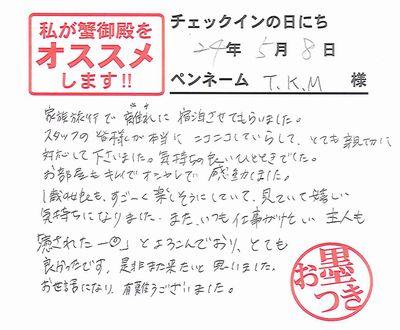 私が蟹御殿を
オススメ
します!!
チェックインの日にち
24年5月8日
ペンネーム T.K.M 様
家族旅行で離れに宿泊させてもらいました。
スタッフの皆様が本当にニコニコしていらして、とても親切に
対応して下さいました。気持ち良いひとときでした。
お部屋もキレイでオシャレで感動しました。
1歳の娘も、すごーく楽しそうにしていて、見ていて嬉しい
気持ちになりました。また、いつも仕事がけわしい主人も
癒されたー」とよろこんでおり、とても
良かったです。是非また来たいと思いました。
お世話になり、有難うございました。
お墨つき